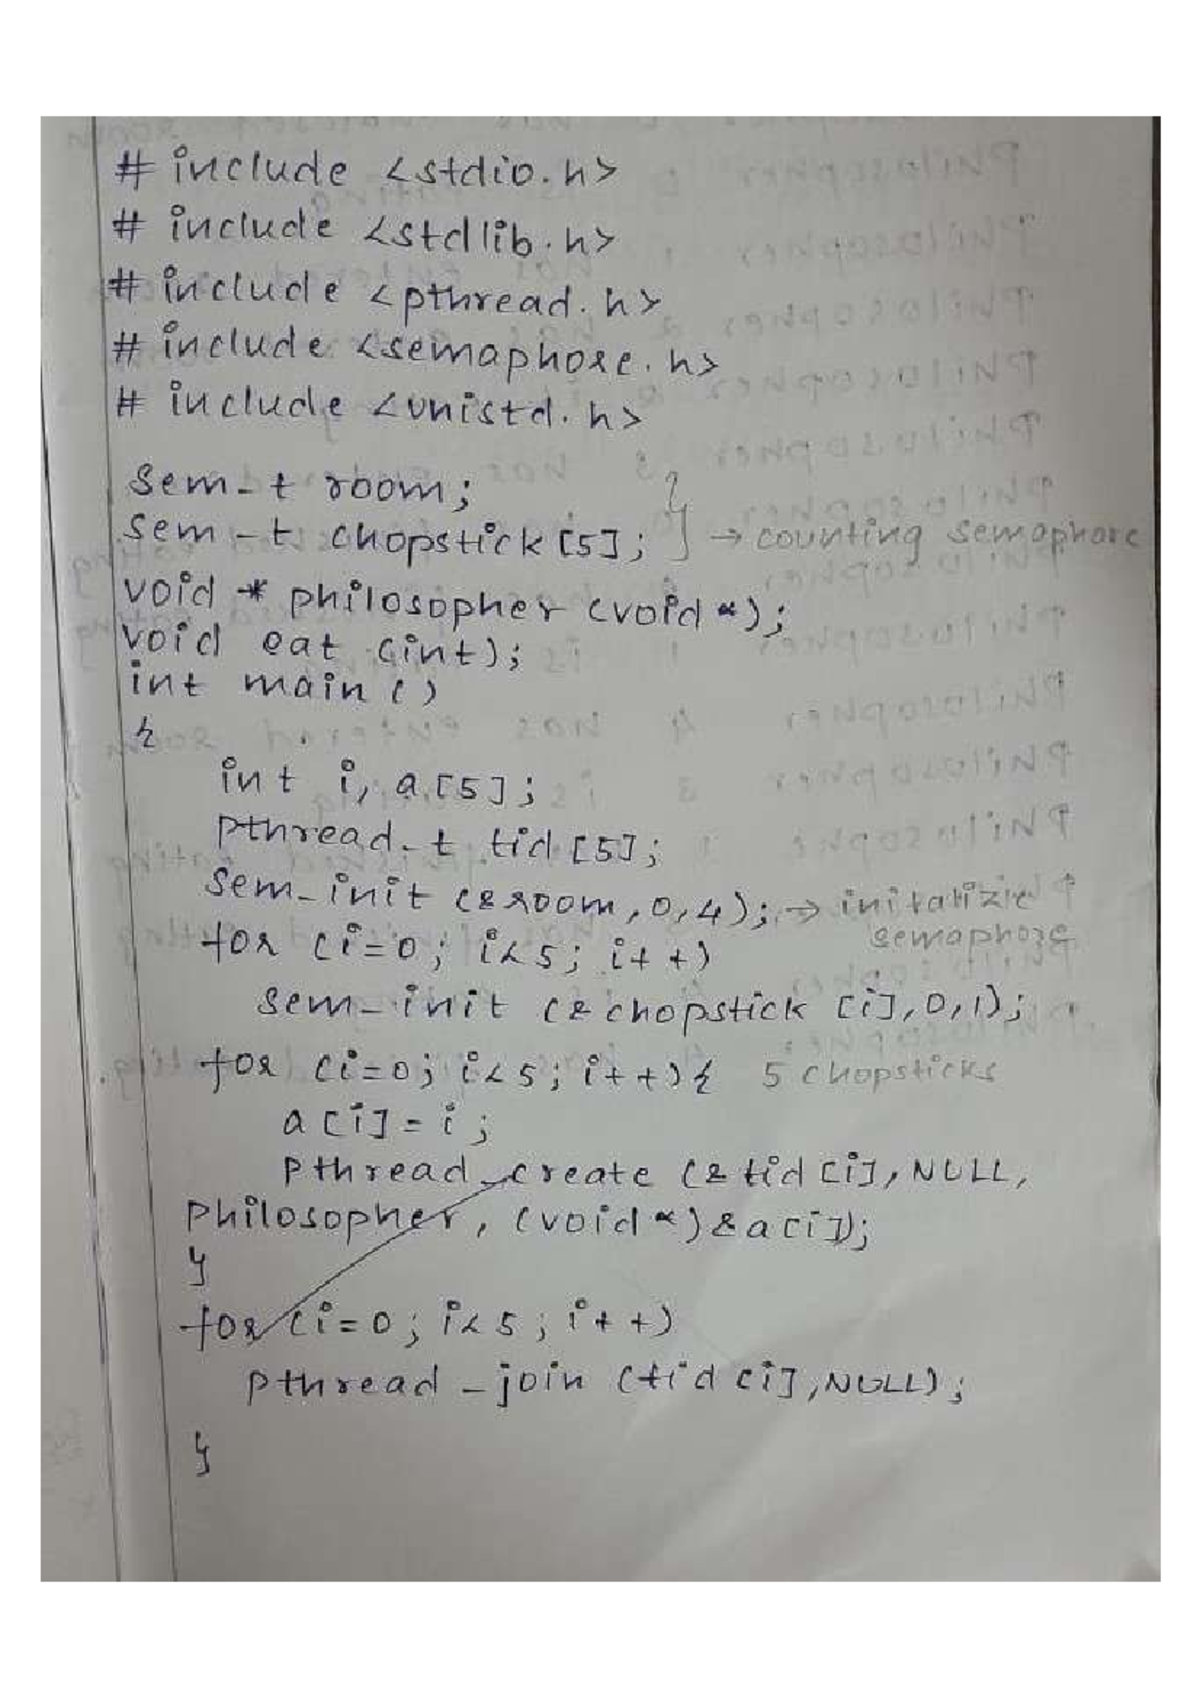 # include <stdio.h>
# include <stdlib.h>
# include <pthread.h>
# include <semaphore.h>
# include <unistd.h>
sem_t room;
sem_t chopstick[5]; } → counting semaphore
void * philosopher (void *);
void eat (int);
int main ()
{
int i, a[5];
pthread_t tid [5];
sem_init (&room, 0, 4); → initalizie
semaphore
for (i=0; i<5; i++)
sem_init (&chopstick [i], 0, 1);
for (i=0; i<5; i++){ 5 chopsticks
a[i] = i;
pthread_create (&tid [i], NULL,
philosopher, (void *) &a[i]);
}
for (i=0; i<5; i++)
pthread_join (tid [i], NULL);
}